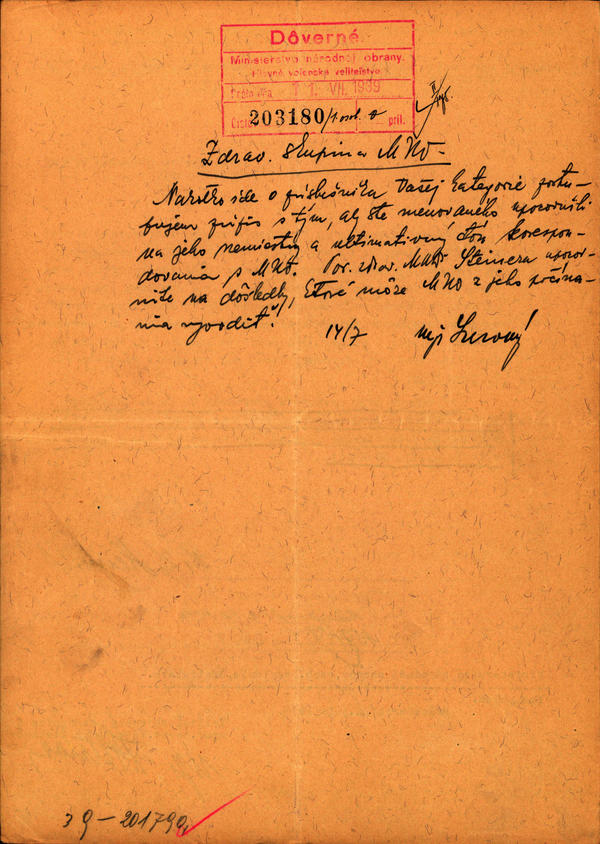 Dôverné.
Ministerstvo národnej obrany.
Hlavné vojenské veliteľstvo
Došlo dňa 11. VII. 1939
Číslo 203180/1 osob. príl.
Zdrav. skupina MNO.
Nakoľko ide o príslušníka Vašej kategorie postu-
pujem prípis s tým, aby ste menovaného upozornili
na jeho nemiestny a ultimatívny tón korespon-
dovania s MNO. Por. zdrav. Steinera upozor-
nite na dôsledky, ktoré môže MNO z jeho počína-
nia vyvodiť.
14/7
39-201790